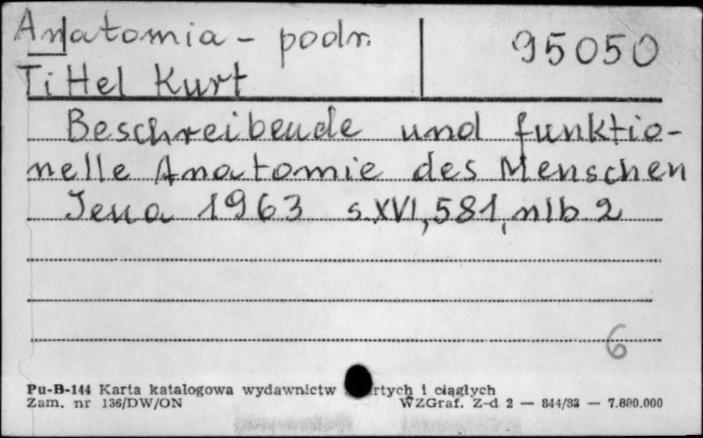 Anatomia - podr.
95050
Tittel Kurt
Beschreibende und funktio-
nelle Anatomie des Menschen
Jena 1963 s.XVI,581,nlb 2
6
Pu-B-144 Karta katalogowa wydawnictw rtych i ciągłych
Zam. nr 136/DW/ON WZGraf. Z-d 2 — 844/83 — 7.880.000